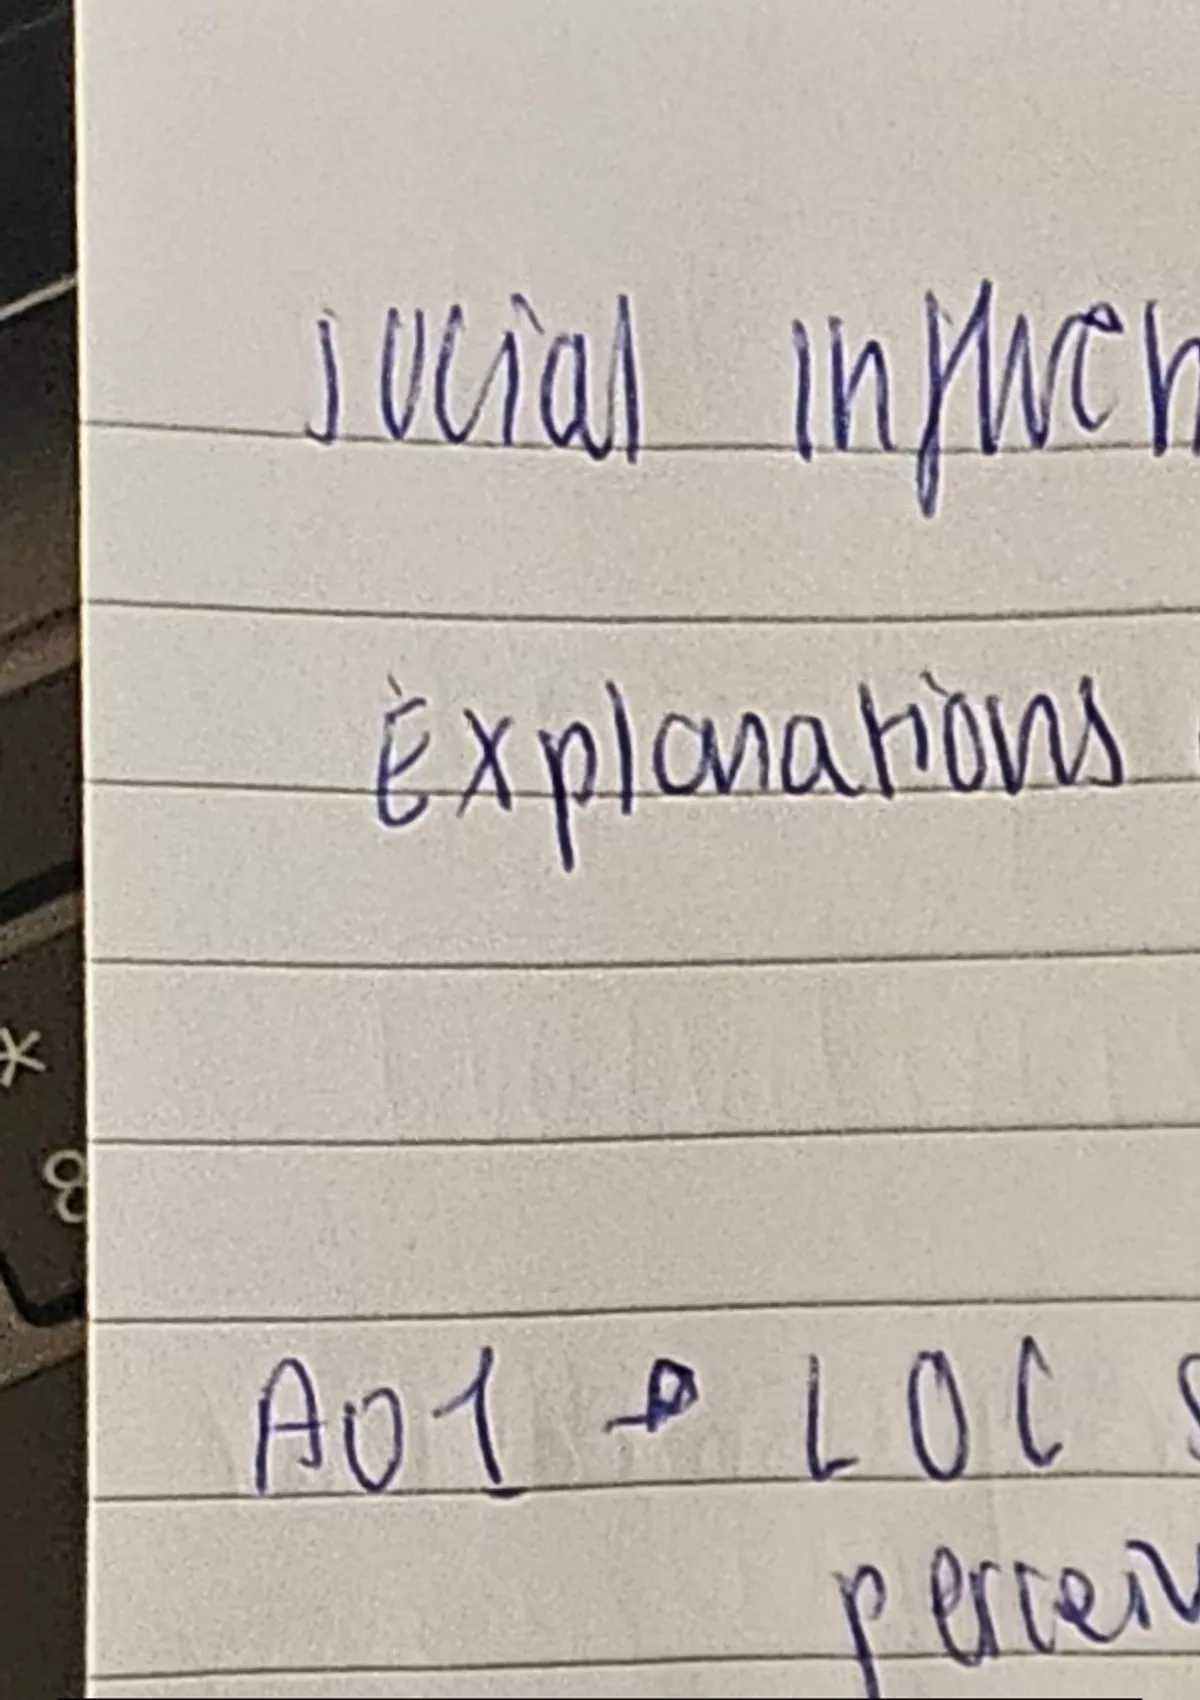 social influen
Explanations
*
8
AO1 → LOC s
perceiv